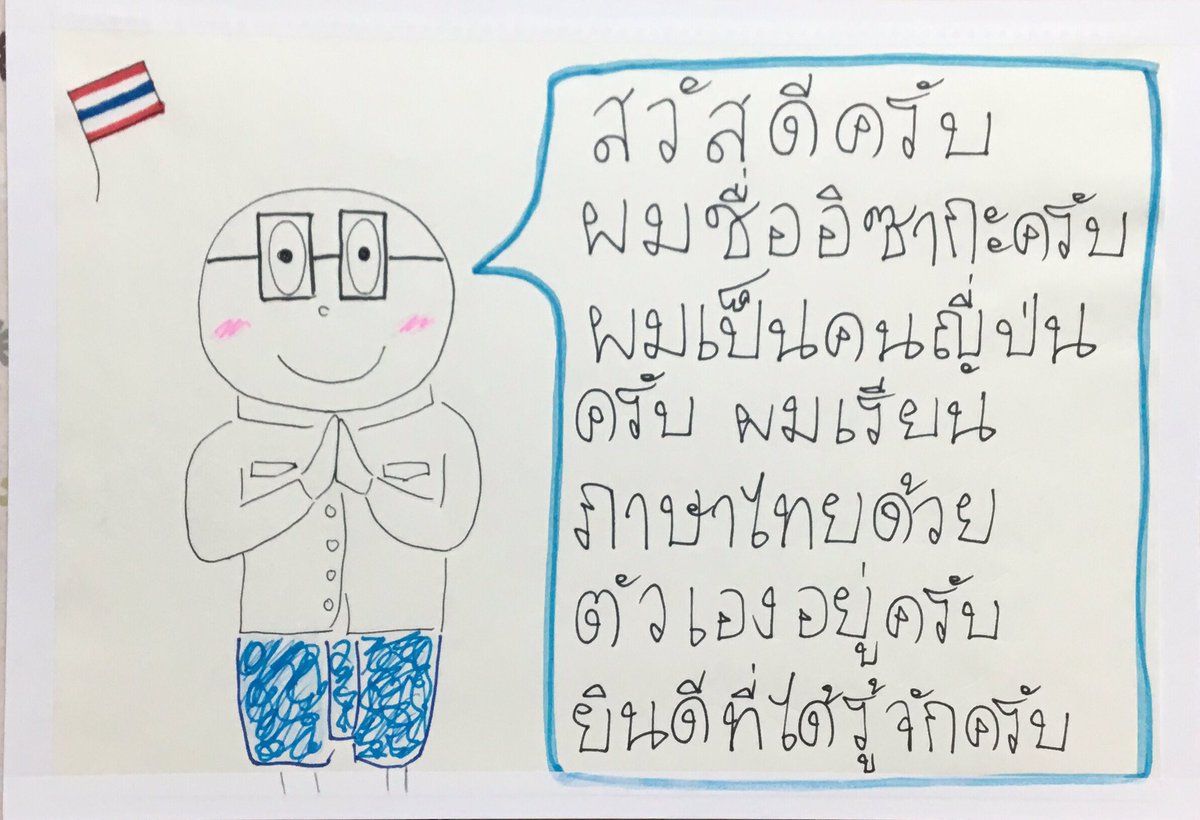 สวัสดีครับ
ผมชื่ออิซากะครับ
ผมเป็นคนญี่ปุ่น
ครับ ผมเรียน
ภาษาไทยด้วย
ตัวเองอยู่ครับ
ยินดีที่ได้รู้จักครับ